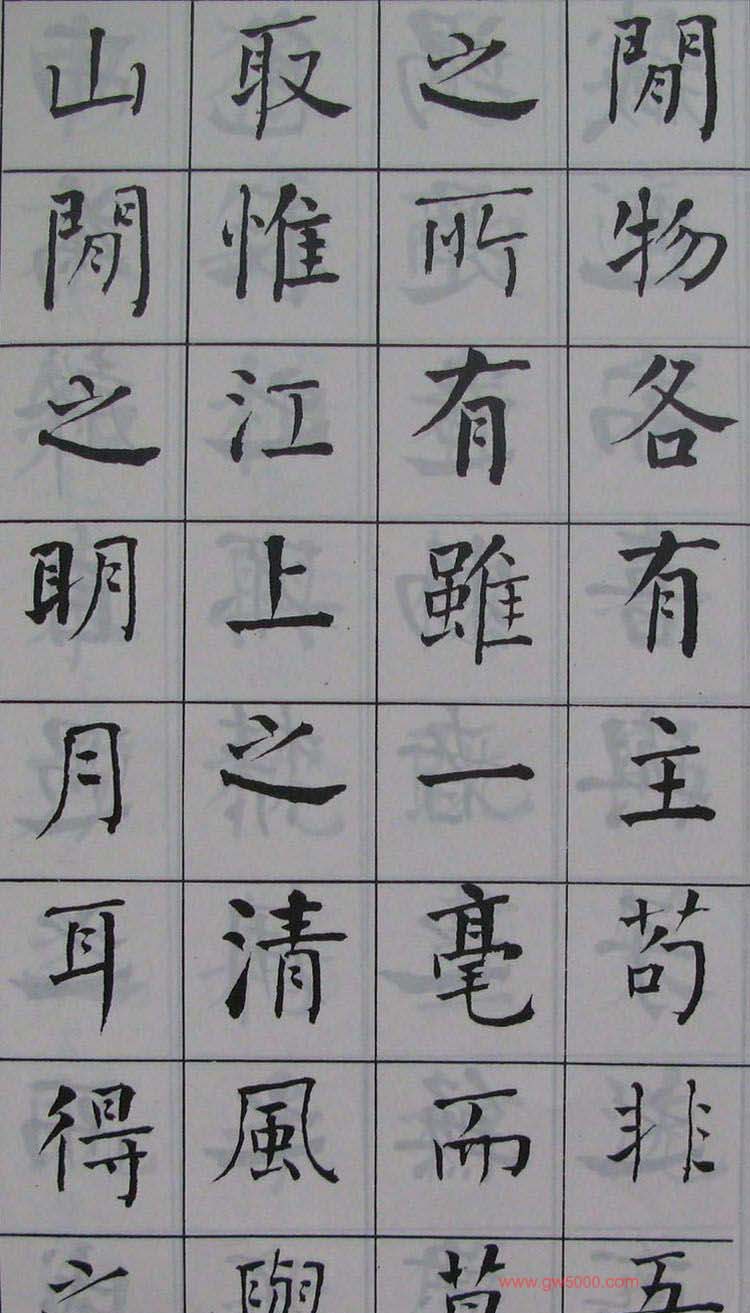 閒物各有主苟非吾
之所有雖一毫而莫
取惟江上之清風與
山閒之明月耳得之
www.gw5000.com